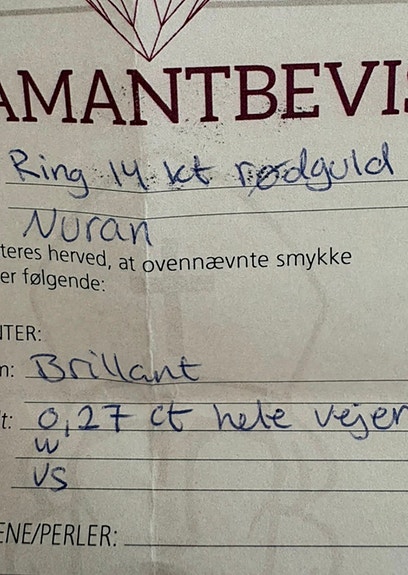 AMANTBEVIS
Ring 14 kt rødguld
Nuran
teres herved, at ovennævnte smykke
er følgende:
NTER:
m: Brillant
t: 0,27 ct hele vejen
W
VS
ENE/PERLER: